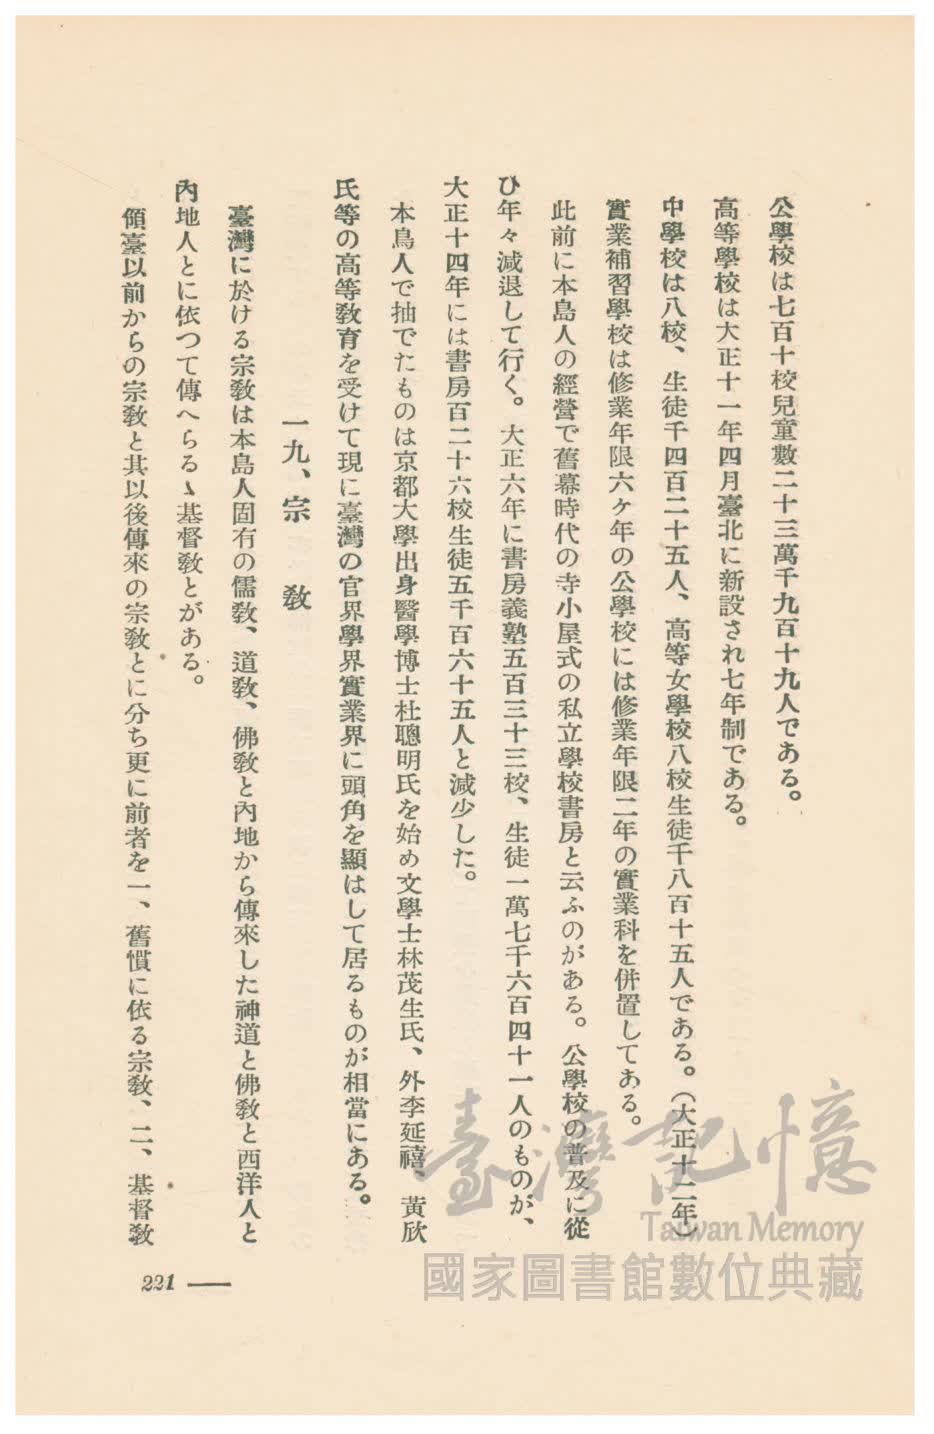 公學校は七百十校兒童數二十三萬千九百十九人である。
高等學校は大正十一年四月臺北に新設され七年制である。
中學校は八校、生徒千四百二十五人、高等女學校八校生徒千八百十五人である。(大正十二年)
實業補習學校は修業年限六ケ年の公學校には修業年限二年の實業科を併置してある。
此前に本島人の經營で舊幕時代の寺小屋式の私立學校書房と云ふのがある。公學校の普及に從
ひ年々減退して行く。大正六年に書房義塾五百三十三校、生徒一萬七千六百四十一人のものが、
大正十四年には書房百二十六校生徒五千百六十五人と減少した。
本鳥人で抽でたものは京都大學出身醫學博士杜聰明氏を始め文學士林茂生氏、外李延禧、黃欣
氏等の高等敎育を受けて現に臺灣の官界學界實業界に頭角を顯はして居るものが相當にある。
一九、宗 敎
臺灣に於ける宗敎は本島人固有の儒敎、道敎、佛敎と內地から傳來した神道と佛敎と西洋人と
內地人とに依つて傳へらるゝ基督敎とがある。
領臺以前からの宗敎と其以後傳來の宗敎とに分ち更に前者を一、舊慣に依る宗敎、二、基督敎
221
臺灣記憶
Taiwan Memory
國家圖書館數位典藏